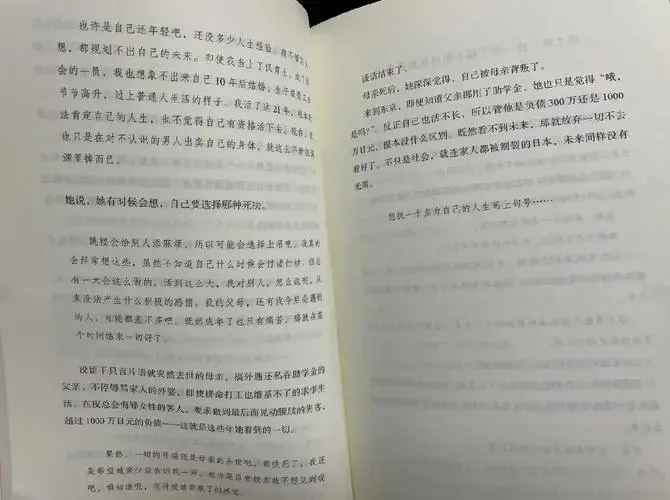 也许是自己还年轻吧，还没多少人生经验。我不够
想，都规划不出自己的未来。即使我当上了保育士，成了
会的一员，我也想象不出来自己10年后结婚、生子
节节高升，过上普通人生活的样子。我活了这21年，根本
法肯定自己的人生，也不觉得自己有资格活下去。现在，
也只是在对不认识的男人出卖自己的身体，就这么
渊里掉而已。
她说，她有时候会想，自己要选择哪种死法。
跳楼会给别人添麻烦，所以可能会选择上吊吧。我真的
会经常想这些，虽然不知道自己什么时候会付诸行动，但总
有一天会这么做的。活到这么大，我对别人，怎么说呢，从
来没法产生什么积极的感情。我的父母，还有我今后会遇到
的人，可能都差不多吧。既然成年了也只有痛苦，那就在某
个时间结束一切好了。
没留下只言片语就突然去世的母亲，搞外遇还私吞助学金的
父亲，不停辱骂家人的外婆，即使拼命打工也维系不了的求学生
活，在夜总会侮辱女性的客人，要求做到最后而晃动腰肢的男客，
超过1000万日元的负债——这就是这些年她看到的一切。
果然，一切的开端还是母亲的去世吧。都快死了，我还
是希望她至少能告诉我一声。也许是自家根本就不想见到我
吧，谁知道呢，有种被她背叛了的感觉。
谈话结束了。
母亲死后，她深深觉得，自己被母亲背叛了。
来到东京，即使知道父亲挪用了助学金，她也只是觉得“哦，
是吗？”。反正自己也活不长，所以管他是负债300万还是1000
万日元，根本没什么区别。既然看不到未来，那就放弃一切不去
看好了。不只是社会，就连家人都被割裂的日本，未来同样没有
光明。
想找一个点为自己的人生画上句号……